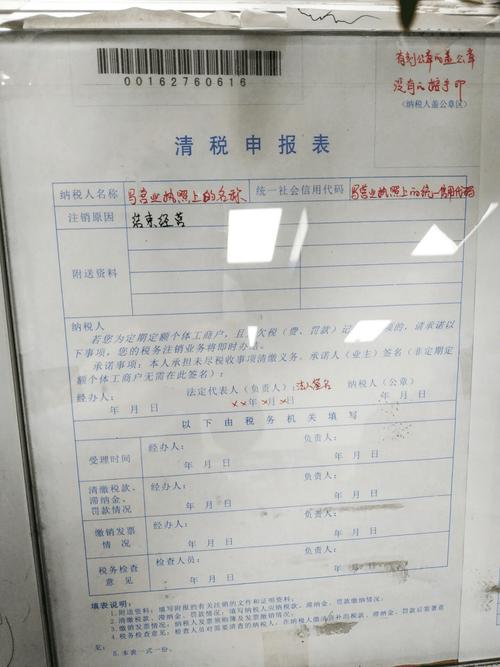 00162760616
有刻公章的盖公章
没有的按手印
（纳税人盖公章区）
清税申报表
纳税人名称 写营业执照上的名称 统一社会信用代码 写营业执照上的统一信用代码
注销原因 结束经营
附送资料
纳税人
若您为定期定额个体工商户，且 欠税（费、罚款）记 的，请承诺以
下事项，您的税务注销业务将即时办
承诺事项：本人承担未尽税收事项清缴义务。承诺人（业主）签名（非定期定
额个体工商户无需在此签名）：
经办人： 法定代表人（负责人）：法人签名 纳税人（公章）
年 月 日 xx年x月x日 年 月 日
以下由税务机关填写
受理时间 经办人： 负责人：
年 月 日 年 月 日
清缴税款、
滞纳金、
罚款情况 经办人： 负责人：
年 月 日 年 月 日
缴销发票
情况 经办人： 负责人：
年 月 日 年 月 日
税务检查
意见 检查人员： 负责人：
年 月 日 年 月 日
填表说明：
1.附送资料：填写附报的有关注销的文件和证明资料。
2.清缴税款、滞纳金、罚款情况：填写纳税人应纳税款、滞纳金、罚款缴纳情况。
3.缴销发票情况：填写发票领购簿及发票缴销情况。
4.税务检查意见：检查人员对需要清查的纳税人，在纳税人缴清查补的税款、滞纳金、罚款后签署意
见；
5.本表一式一份。